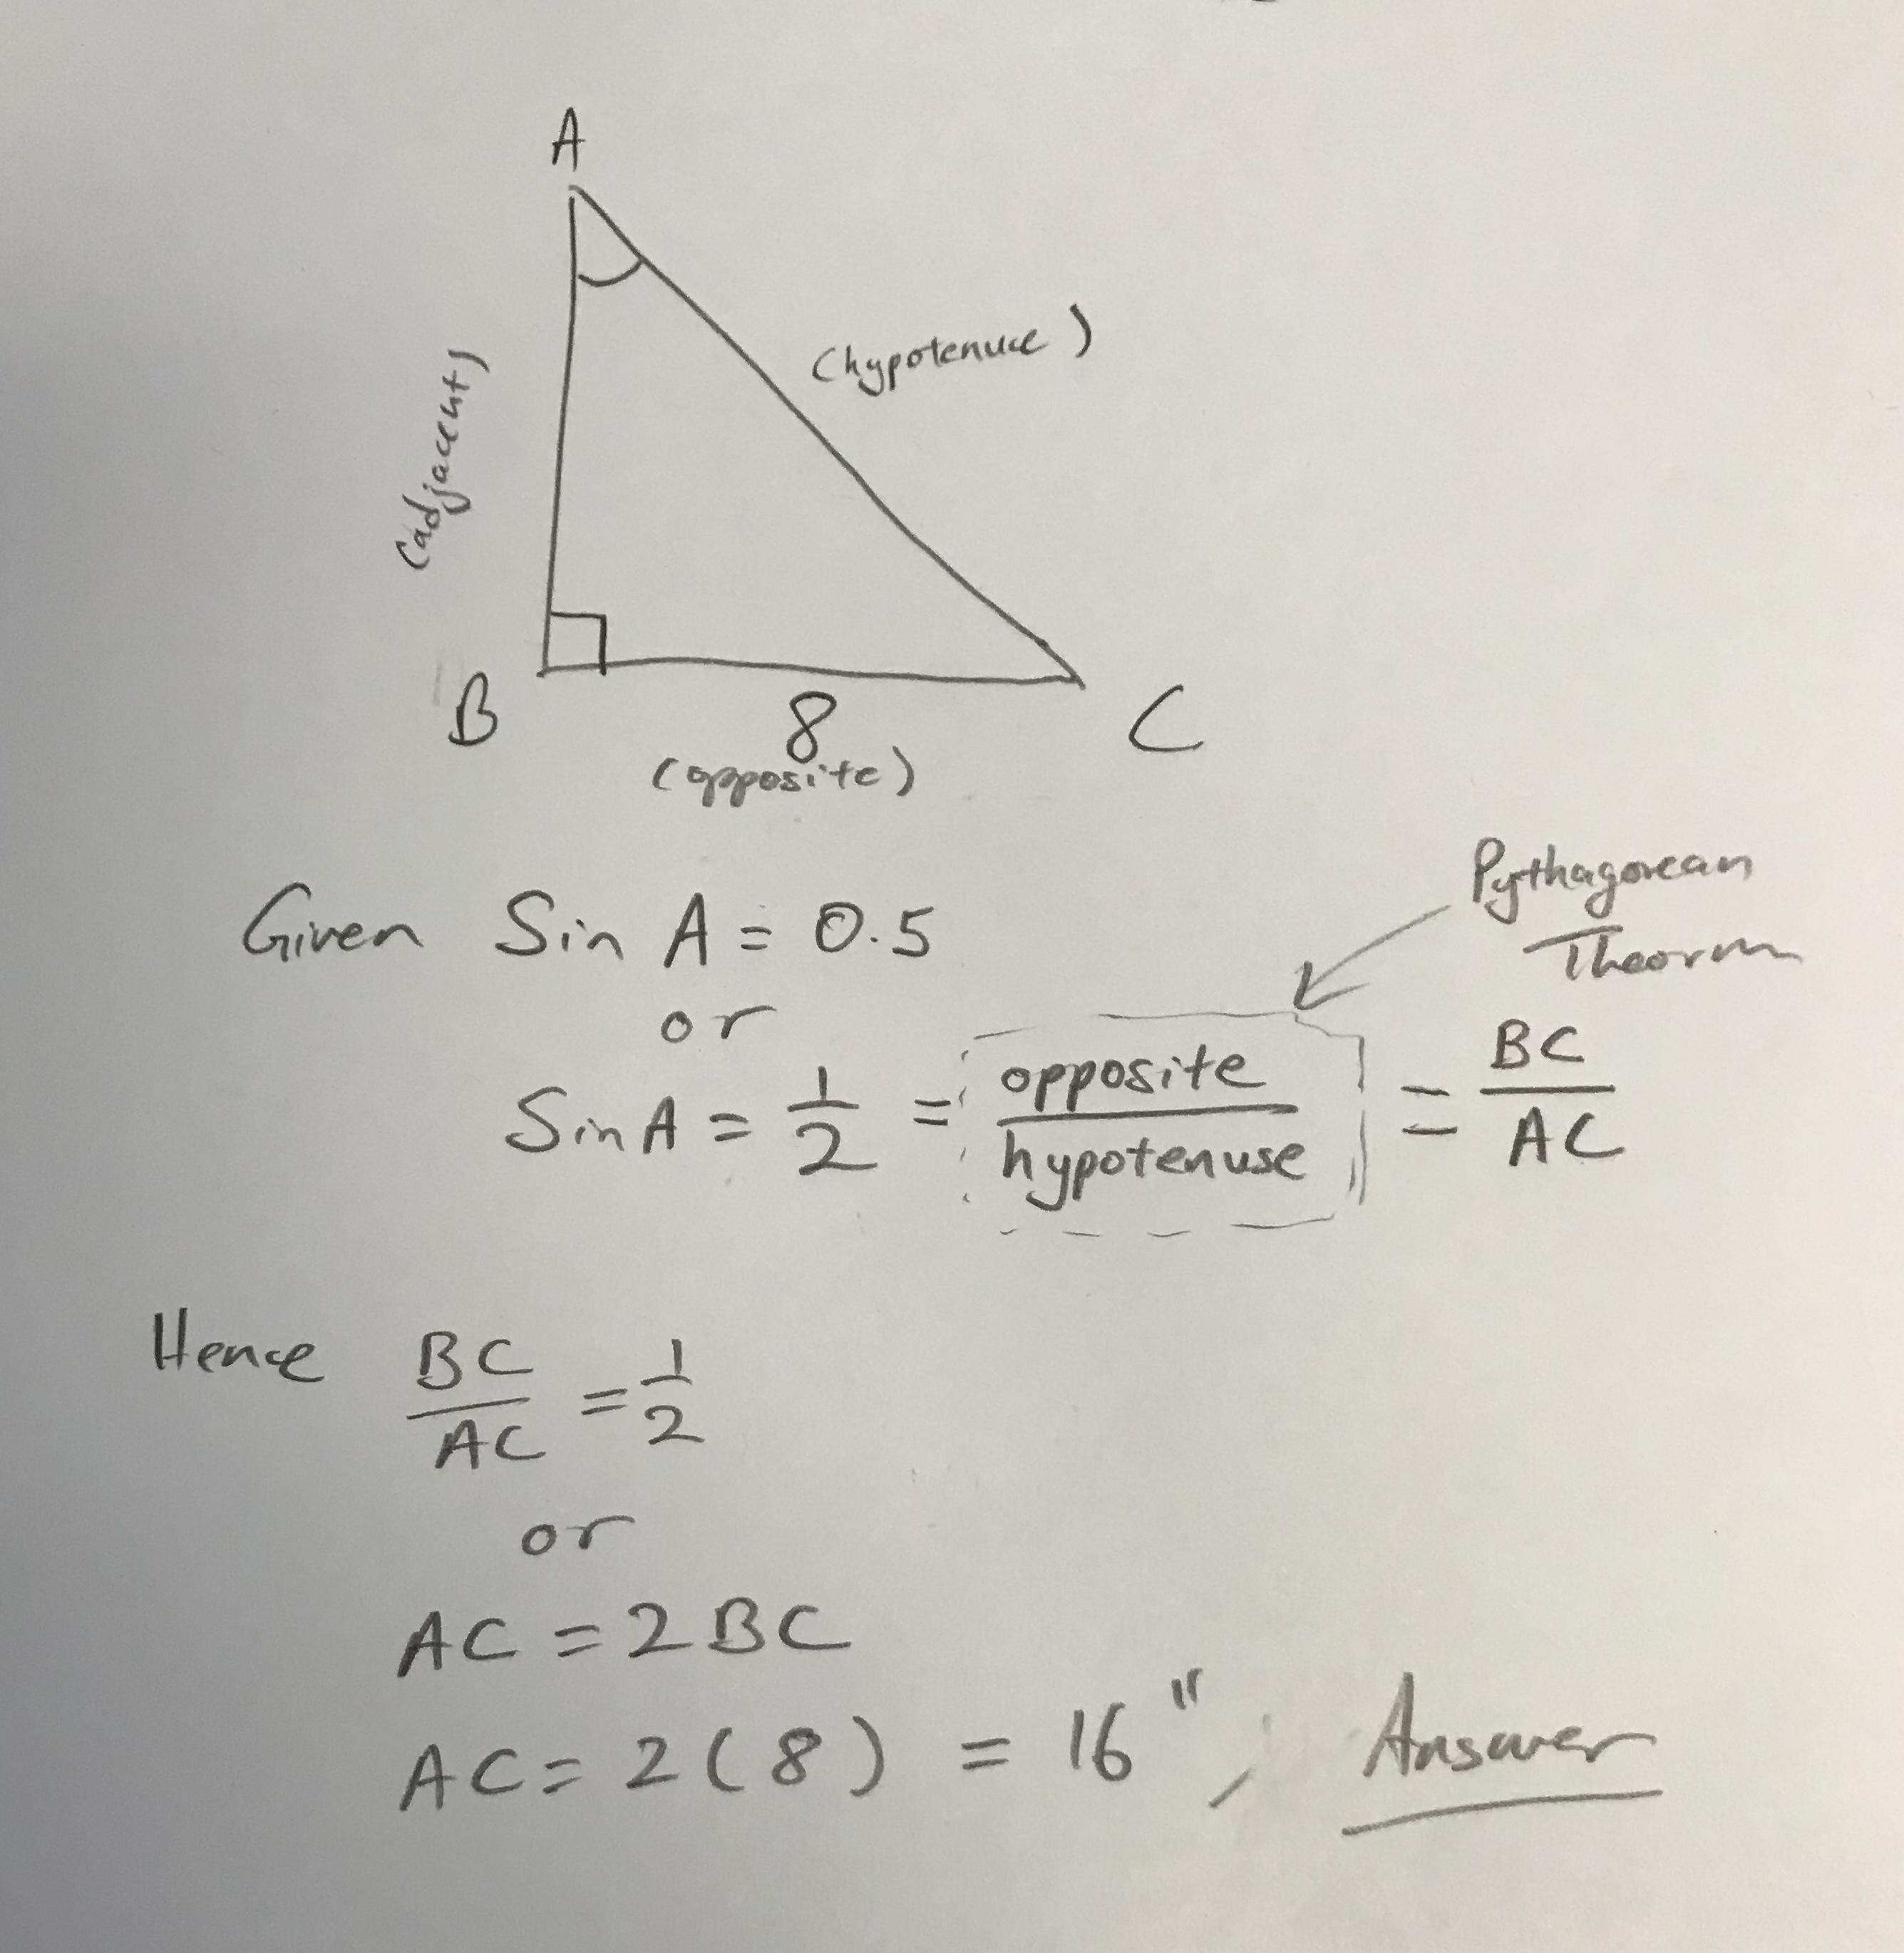 A
(hypotenuce)
(adjacent)
B
8
C
(opposite)
Pythagorean
Theorm
Given Sin A = 0.5
or
Sin A = 1/2 = opposite/hypotenuse = BC/AC
Hence BC/AC = 1/2
or
AC = 2 BC
AC = 2(8) = 16", Answer